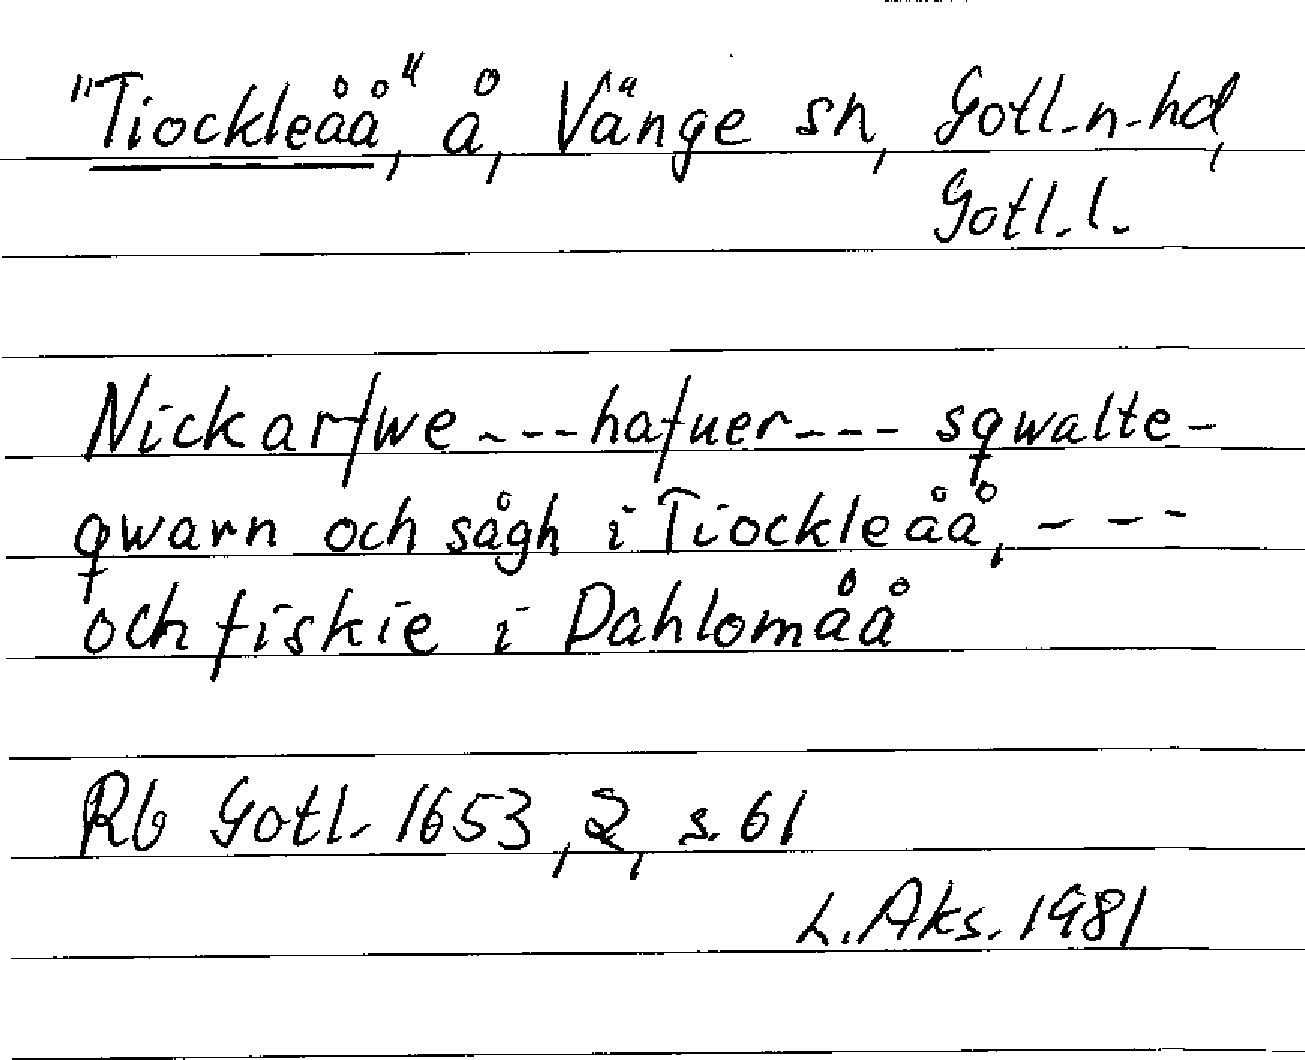 "Tiockleåå", å, Vänge sn, Gotl.n.hd,
Gotl.l.
Nickarfwe ---- hafuer --- sqwalte-
qwarn och sågh i Tiockleåå, ---
och fiskie i Dahlomåå
Rb Gotl. 1653, 2, s. 61
L. Aks. 1981